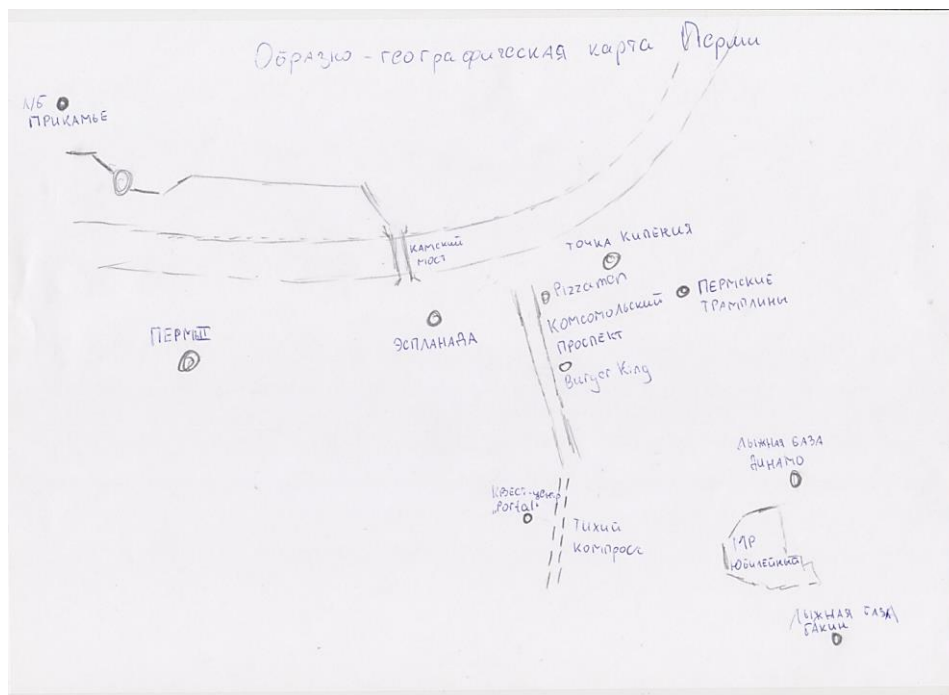 Образно-географическая карта Перми
Л/Б
ПРИКАМЬЕ
КАМСКИЙ
МОСТ
ТОЧКА КИПЕНИЯ
Pizzamon
ПЕРМСКИЕ
ТРАМПЛИНЫ
КОМСОМОЛЬСКИЙ
ПРОСПЕКТ
ПЕРМЬ II
ЭСПЛАНАДА
Burger King
ЛЫЖНАЯ БАЗА
ДИНАМО
КВЕСТ-ЦЕНТР
"Portal"
ТИХИЙ
КОМПРОС
М/Р
ЮБИЛЕЙНЫЙ
ЛЫЖНАЯ БАЗА
БАКИН